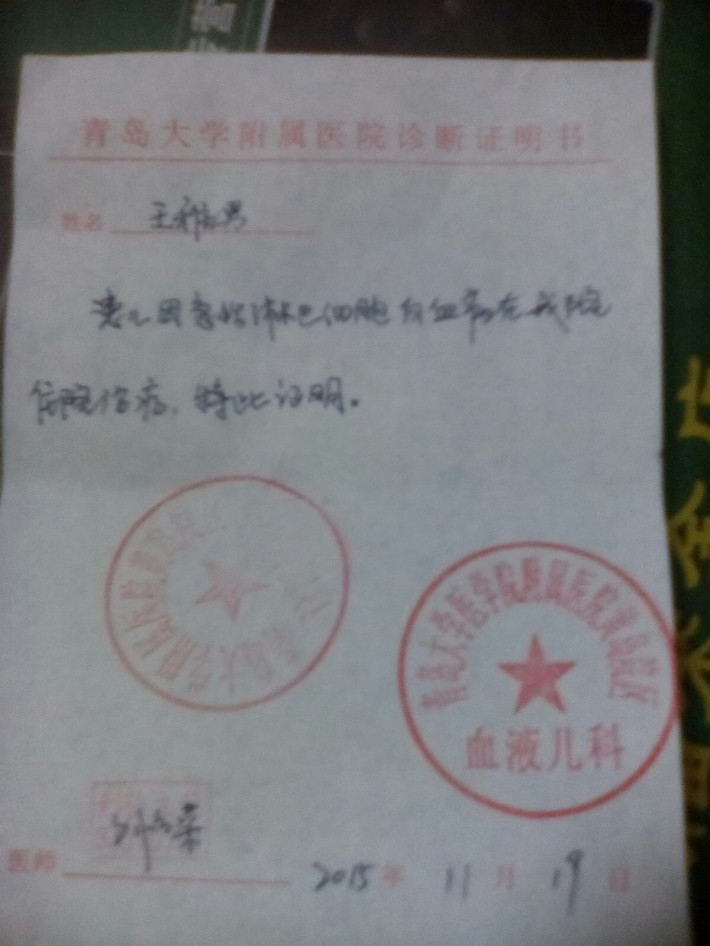 青岛大学附属医院诊断证明书
姓名 王
患儿因急性淋巴细胞白血病在我院
住院治疗，特此证明。
青岛大学医学院附属医院黄岛院区
血液儿科
医师
2015年 11月 19日